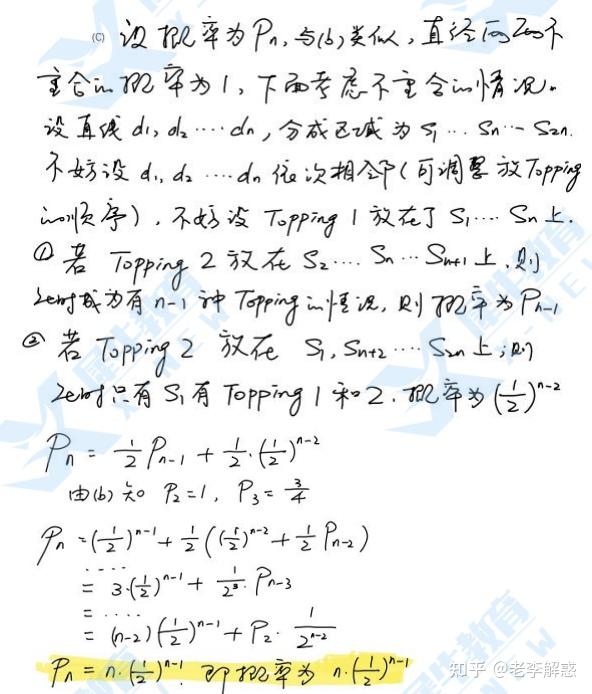 (c) 设概率为Pn, 与(b)类似, 直径两两不
重合的概率为1, 下面考虑不重合的情况。
设直线 d₁, d₂ ⋯⋯ dn, 分成区域为 S₁ ⋯ Sn ⋯ S2n.
不妨设 d₁, d₂ ⋯⋯ dn 依次相邻 (可调整放Topping
的顺序), 不妨设 Topping 1 放在了 S₁ ⋯⋯ Sn 上.
① 若 Topping 2 放在 S₂ ⋯⋯ Sn ⋯ Sn+1 上, 则
此时成为有 n-1 种 Topping 的情况, 则概率为 Pn-1
② 若 Topping 2 放在 S₁, Sn+2 ⋯⋯ S2n 上, 则
此时只有 S₁ 有 Topping 1 和 2. 概率为 (1/2)^(n-2)
Pn = 1/2 Pn-1 + 1/2·(1/2)^(n-2)
由(b)知 P₂=1, P₃=3/4
Pn = (1/2)^(n-1) + 1/2((1/2)^(n-2) + 1/2 Pn-2)
⋯⋯
= 3·(1/2)^(n-1) + 1/2³·Pn-3
= ⋯⋯
= (n-2)(1/2)^(n-1) + P₂·1/2^(n-2)
Pn = n·(1/2)^(n-1). 即概率为 n·(1/2)^(n-1)
知乎 @老李解惑